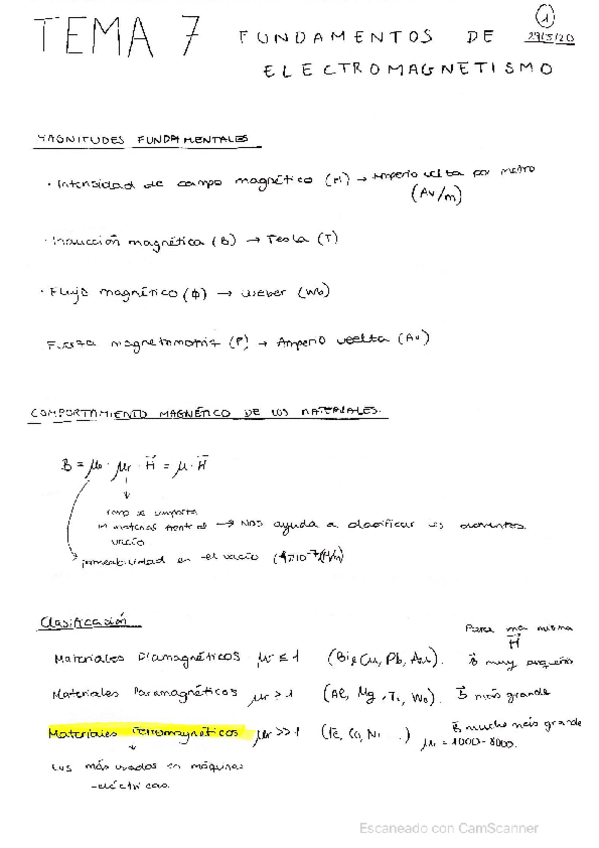 1
TEMA 7 FUNDAMENTOS DE 29/3/20
ELECTROMAGNETISMO
MAGNITUDES FUNDAMENTALES
· Intensidad de campo magnético (H) → Amperio vuelta por metro
(Av/m)
· Inducción magnética (B) → Tesla (T)
· Flujo magnético (ϕ) → Weber (Wb)
Fuerza magnetomotriz (F) → Amperio vuelta (Av)
COMPORTAMIENTO MAGNÉTICO DE LOS MATERIALES.
B = μ₀ · μr · H = μ · H
como se comporta
→ Nos ayuda a clasificar los elementos
vacío
permeabilidad en el vacío (4π10⁻⁷ H/m)
Clasificación
Para una misma
H
Materiales Diamagnéticos μr ≤ 1 (Bi, Cu, Pb, Au). B muy pequeño
Materiales Paramagnéticos μr > 1 (Al, Mg, Ti, Wo). B más grande
Materiales Ferromagnéticos μr >> 1 (Fe, Co, Ni ..) B mucho más grande
μr = 1000 - 8000.
Los más usados en máquinas
eléctricas.
Escaneado con CamScanner